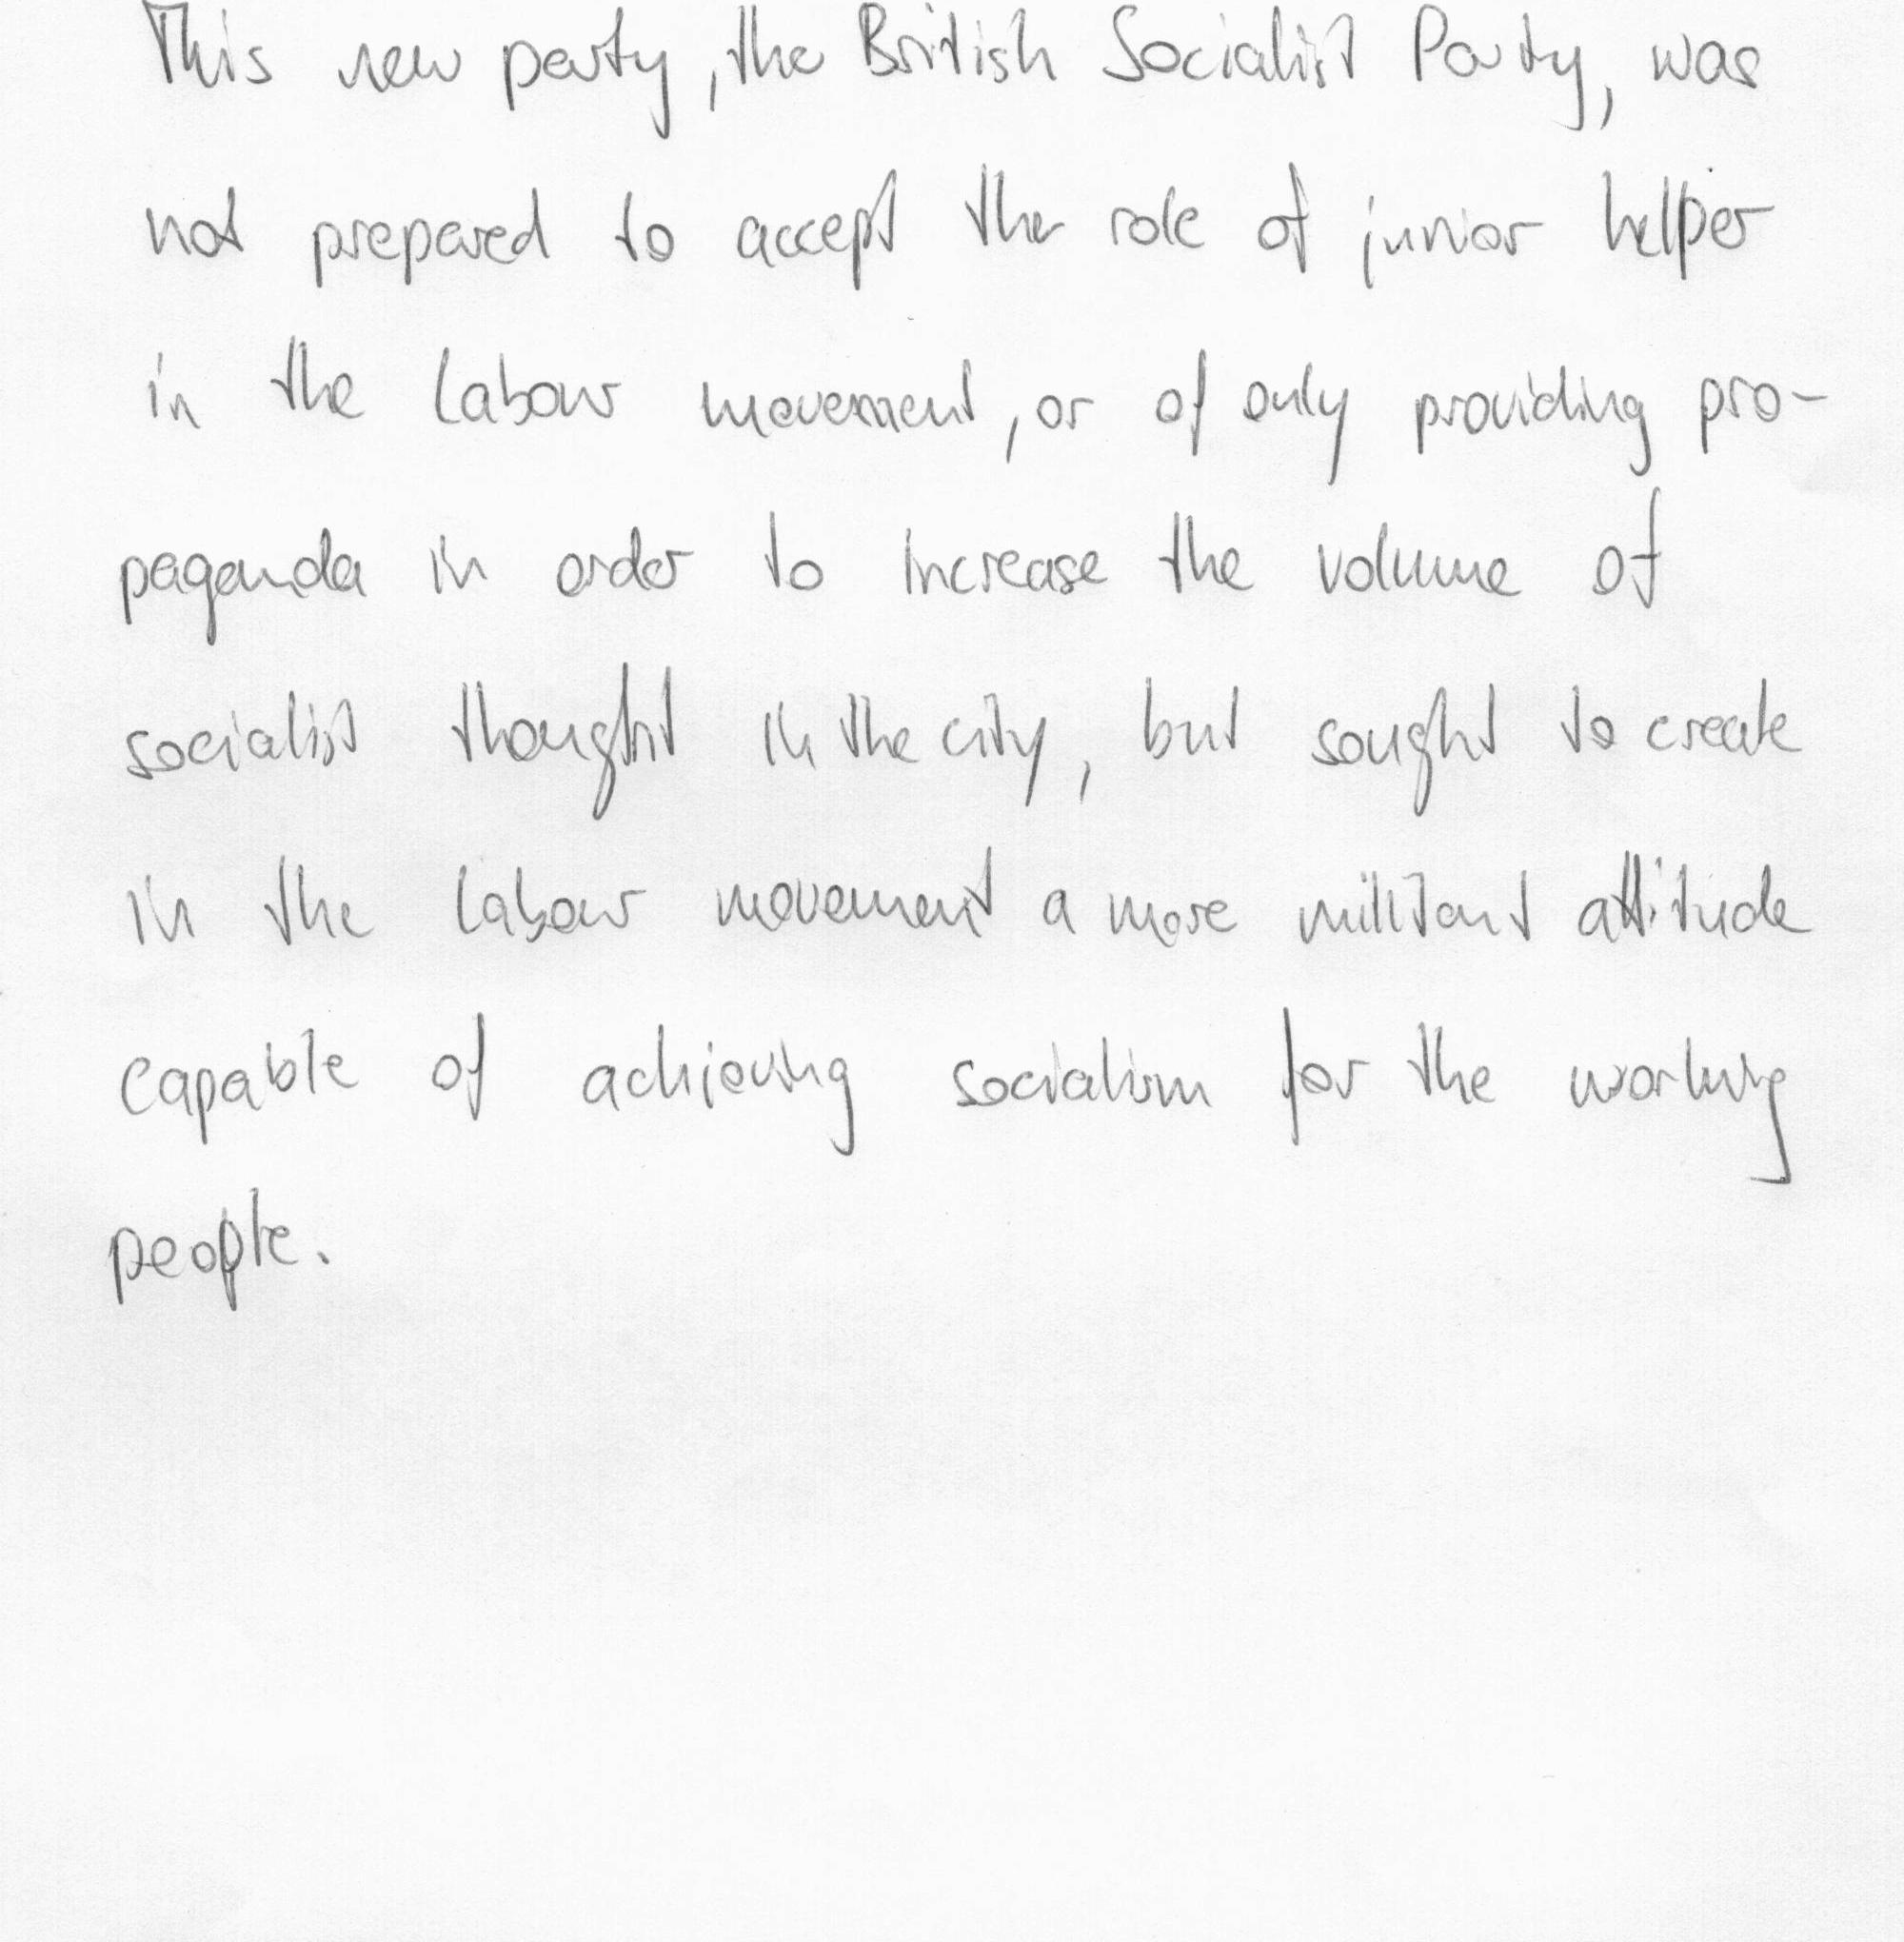 This new party, the British Socialist Party, was
not prepared to accept the role of junior helper
in the Labour movement, or of only providing pro-
paganda in order to increase the volume of
socialist thought in the city, but sought to create
in the labour movement a more militant attitude
capable of achieving socialism for the working
people.